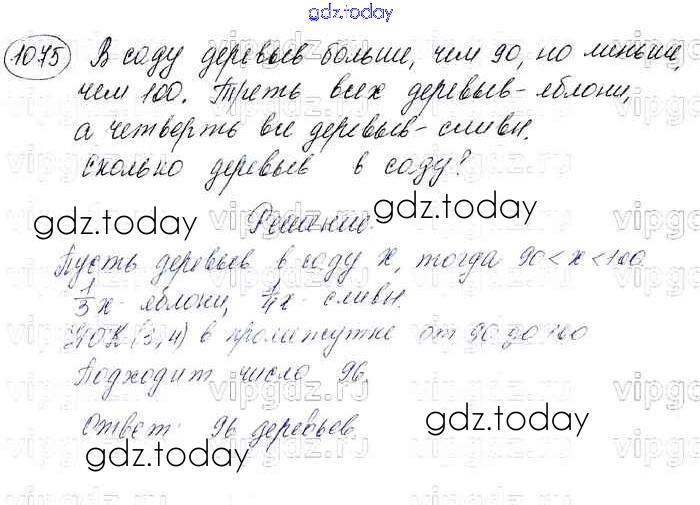 gdz.today
1075 В саду деревьев больше, чем 90, но меньше,
чем 100. Треть всех деревьев - яблони,
а четверть все деревьев - сливы.
Сколько деревьев в саду?
gdz.today
gdz.today
Решение.
Пусть деревьев в саду x, тогда 90 < x < 100
1/3 x - яблони, 1/4 x - сливы.
НОК (3,4) в промежутке от 90 до 100
Подходит число 96.
Ответ: 96 деревьев.
gdz.today
gdz.today